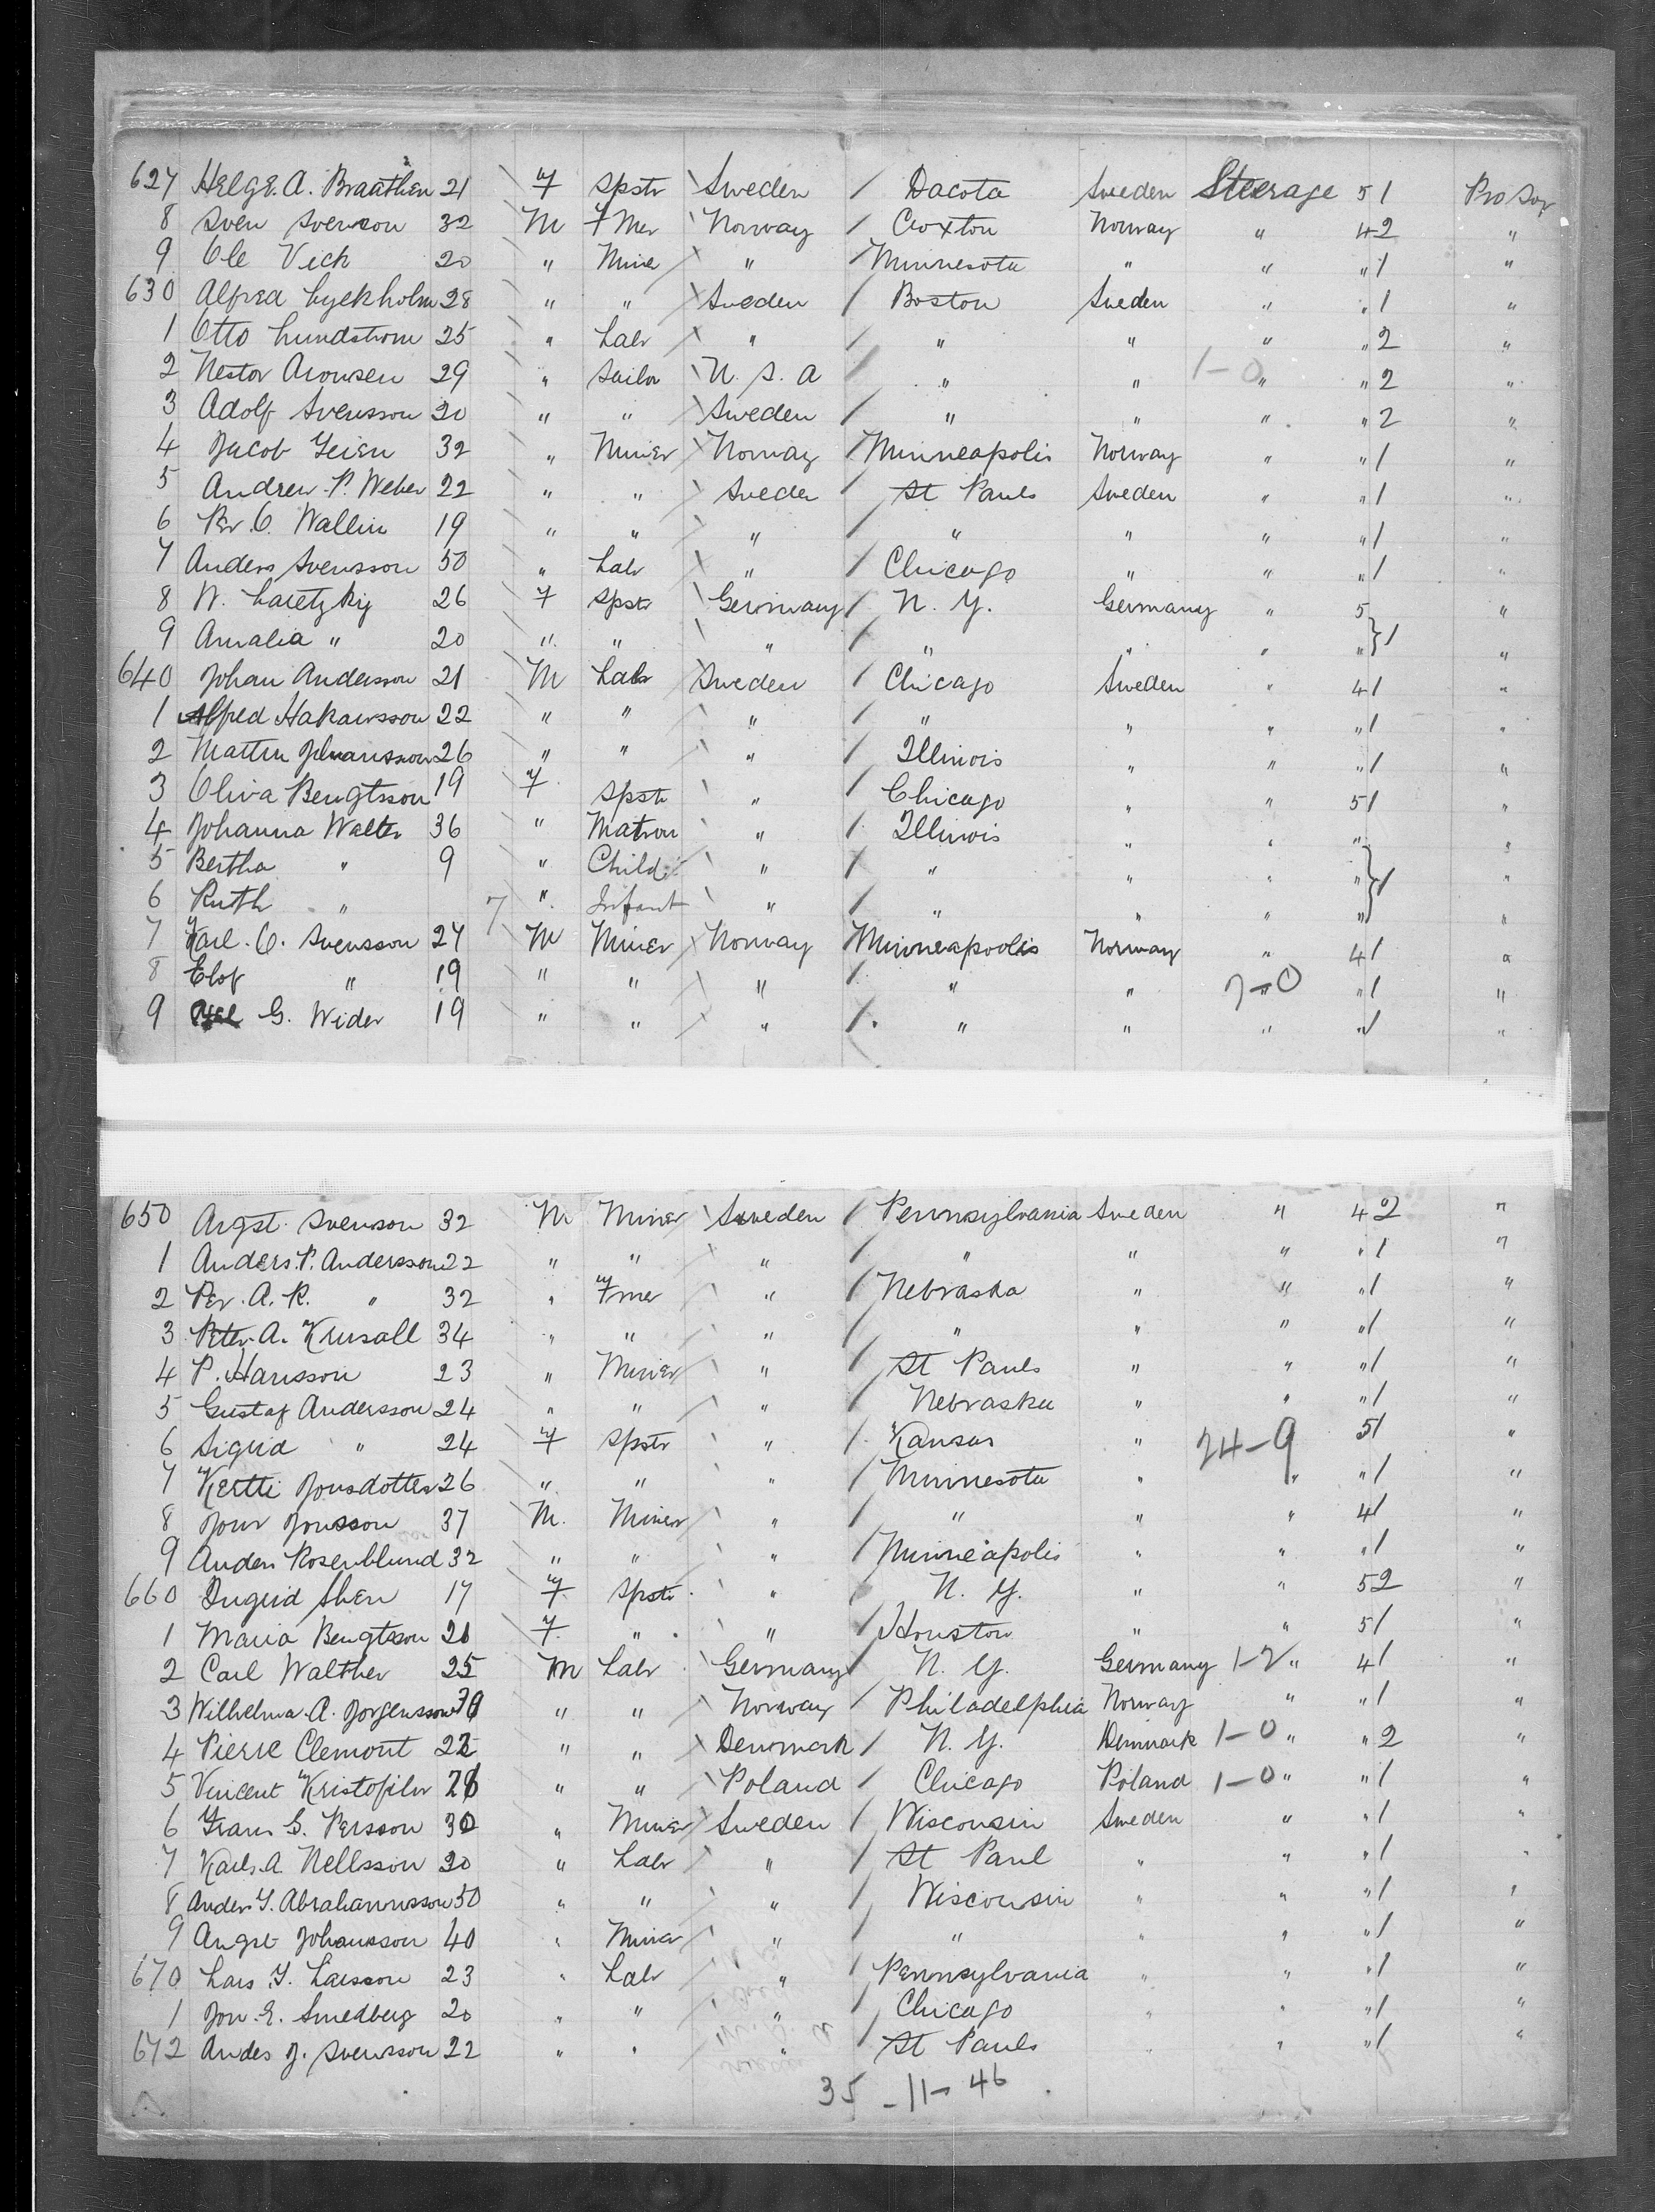 627 Helge. A. Braathen 21 F Spstr Sweden / Dacota Sweden Steerage 5 1 Pro Sov
8 Sven Svenson 32 M Fmer Norway / Croxton Norway " 4 2 "
9 Ole Vick 20 " Miner " / Minnesota " " " 1 "
630 Alfred Lyckholm 28 " " Sweden / Boston Sweden " " 1 "
1 Otto Lundstrom 25 " Labr " / " " " " 2 "
2 Nestor Aronsen 29 " Sailor U. S. A / " " 1-0 " " 2 "
3 Adolf Svensson 20 " " Sweden / " " " " 2 "
4 Jacob Geien 32 " Miner Norway / Minneapolis Norway " " 1 "
5 Andrew. P. Weber 22 " " Sweden / St Pauls Sweden " " 1 "
6 Per O. Wallin 19 " " " / " " " " 1 "
7 Anders Svensson 50 " Labr " / Chicago " " " 1 "
8 W. Laretzky 26 F Spstr Germany / N. Y. Germany " 5 "
9 Amalia " 20 " " " / " " " " } 1 "
640 Johan Andersson 21 M Labr Sweden / Chicago Sweden " 4 1 "
1 Alfred Hakansson 22 " " " / " " " " 1 "
2 Martin Johansson 26 " " " / Illinois " " " 1 "
3 Oliva Bengtsson 19 F Spstr " / Chicago " " 5 1 "
4 Johanna Walter 36 " Matron " / Illinois " " " "
5 Bertha " 9 " Child " / " " " " } 1 "
6 Ruth " 7 " Infant " / " " " " "
7 Karl. O. Svensson 27 M Miner Norway / Minneapoolis Norway " 4 1 "
8 Elof " 19 " " " / " " 7-0 " 1 "
9 G. Wider 19 " " " / " " " " 1 "
650 Augst. Svenson 32 M Miner Sweden / Pennsylvania Sweden " 4 2 "
1 Anders. P. Andersson 22 " " " / " " " " 1 "
2 Per. A. R. " 32 " Fmer " / Nebraska " " " 1 "
3 Peter. A. Krusall 34 " " " / " " " " 1 "
4 P. Hansson 23 " Miner " / St Pauls " " " 1 "
5 Gustaf Andersson 24 " " " / Nebraska " " " 1 "
6 Sigrid " 24 F Spstr " / Kansas " 24-9 5 1 "
7 Kertti Jonsdotter 26 " " " / Minnesota " " " 1 "
8 Jons Jonsson 37 M. Miner " / " " " 4 1 "
9 Anders Rosenblund 32 " " " / Minneapolis " " " 1 "
660 Ingrid Sben 17 F Spstr " N. Y. " " 5 2 "
1 Maria Bengtsson 21 F " " / Houston " " 5 1 "
2 Carl Walther 25 M Labr Germany / N. Y. Germany 1-2 " 4 1 "
3 Wilhelma. A. Jorgensson " " Norway / Philadelphia Norway " " 1 "
4 Pierre Clemont 22 " " Denmark / N. Y. Denmark 1-0 " " 2 "
5 Vincent Kristofiler " " Poland / Chicago Poland 1-0 " " 1 "
6 Frans G. Persson 30 " Miner Sweden / Wisconsin Sweden " " 1 "
7 Karls. A. Nellsson 20 " Labr " / St Paul " " " 1 "
8 Anders J. Abrahamsson 50 " " " / Wisconsin " " " 1 "
9 Augst Johansson 40 " Miner " / " " " " 1 "
670 Lars J. Larsson 23 " Labr " / Pennsylvania " " " 1 "
1 Jon. E. Smedberg 20 " " " / Chicago " " " 1 "
672 Andes J. Svensson 22 " " " / St Pauls " " " 1 "
35 - 11 - 46